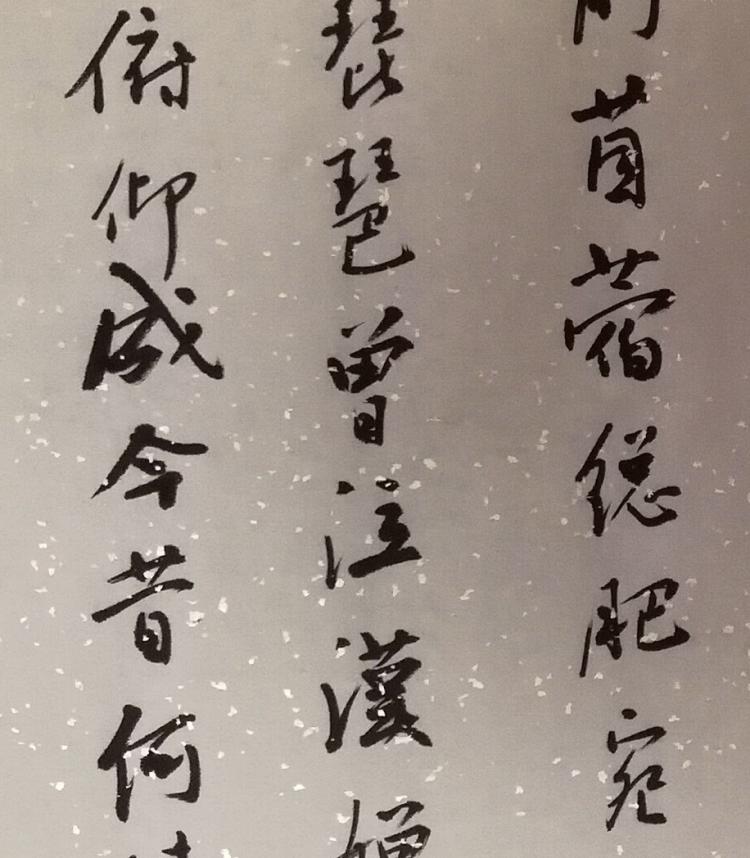 苜蓿總肥宛
琵琶曾泣漢嬋
俯仰成今昔何